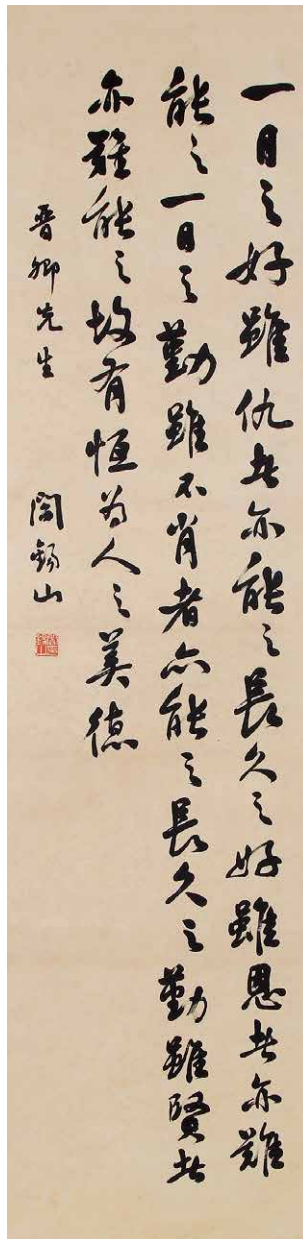 一日之好雖仇者亦能之長久之好雖恩者亦難
能之一日之勤雖不肖者亦能之長久之勤雖賢者
亦難能之故有恒為人之美德
晉卿先生 閻錫山